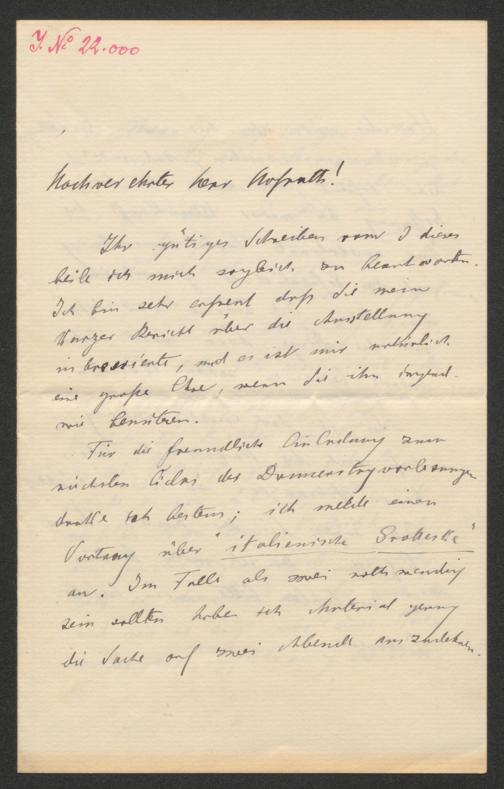 J. No 22.000
Hochverehrter Herr Hofrath!
Ihr gütiges Schreiben vom 1 dieses
beeile ich mich sogleich zu beantworten.
Ich bin sehr erfreut daß Sie mein
kurzer Bericht über die Ausstellung
interessierte, und es ist mir natürlich
eine große Ehre, wenn Sie ihn irgend-
wie benützen.
Für die freundliche Einladung zum
nächsten Ciclus der Donnerstagvorlesungen
danke ich bestens; ich melde einen
Vortrag über "italienische Groteske"
an. Im Falle als zwei nothwendig
sein sollten habe ich Material genug
die Sache auf zwei Abende auszudehnen.